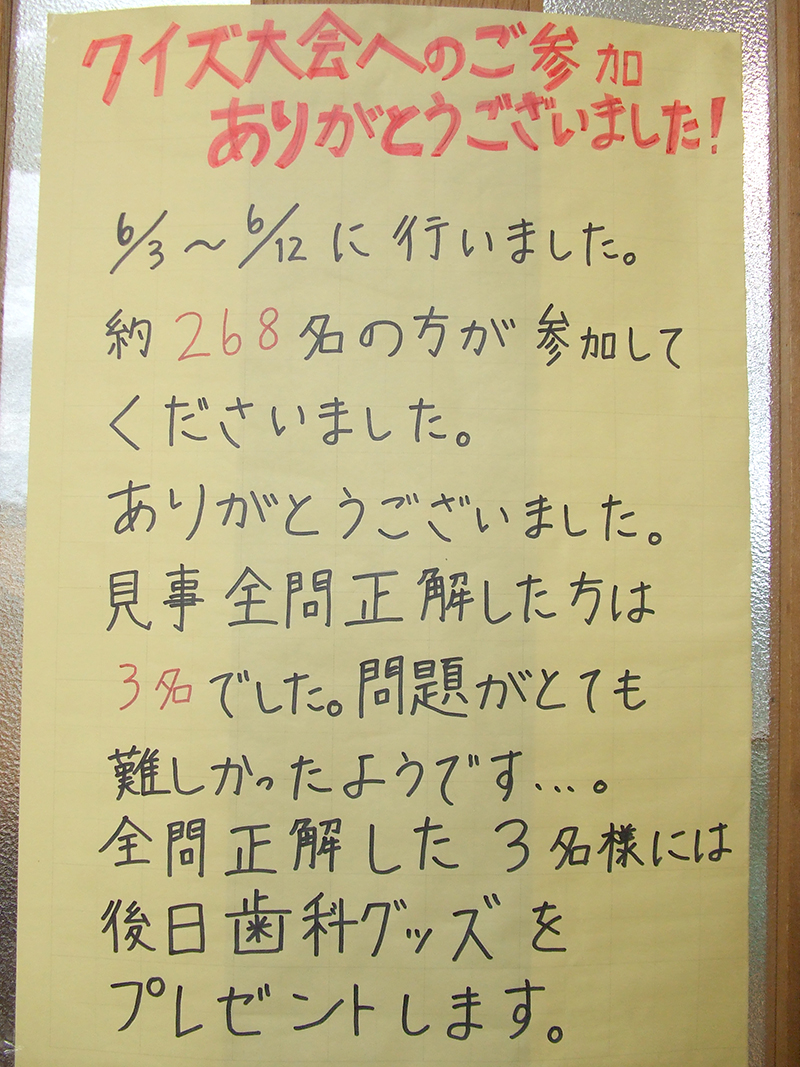 クイズ大会へのご参加
ありがとうございました!
6/3〜6/12に行いました。
約268名の方が参加して
くださいました。
ありがとうございました。
見事全問正解した方は
3名でした。問題がとても
難しかったようです...。
全問正解した3名様には
後日歯科グッズを
プレゼントします。